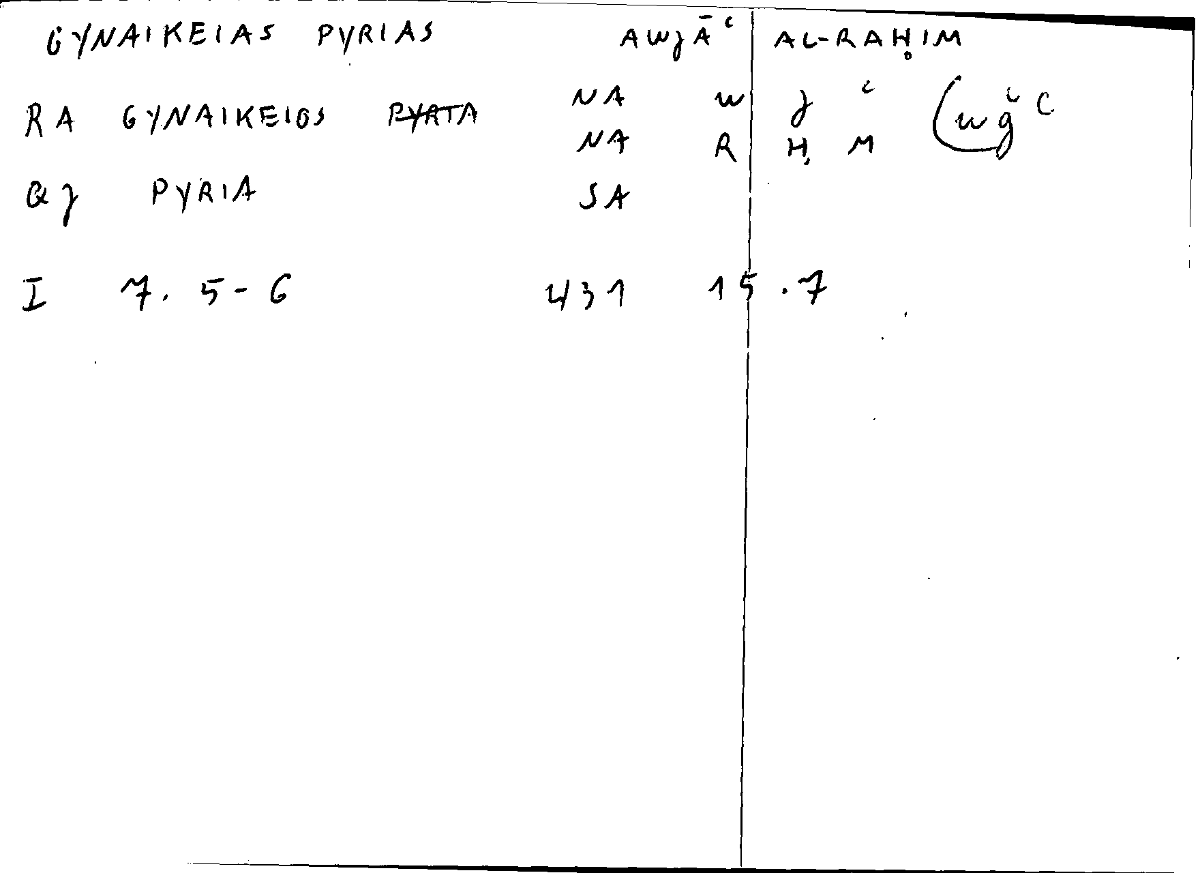 GYNAIKEIAS PYRIAS AWJĀʿ AL-RAḤIM
RA GYNAIKEIOS ~~PYRTA~~ NA W J ʿ
NA R Ḥ M
QJ PYRIA SA
I 7. 5-6 431 15.7